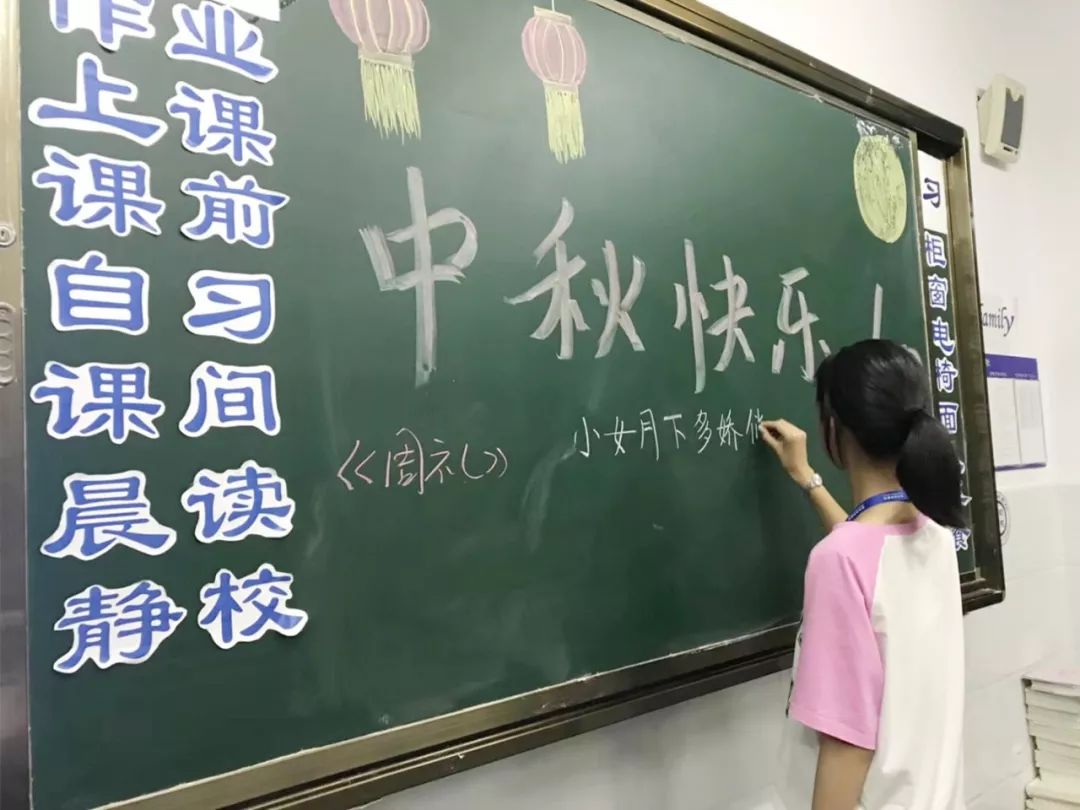 作业
上课
课前
自习
课间
晨读
静校
中秋快乐！
《周礼》
小女月下多娇
习
柜
窗
电
椅
面
family